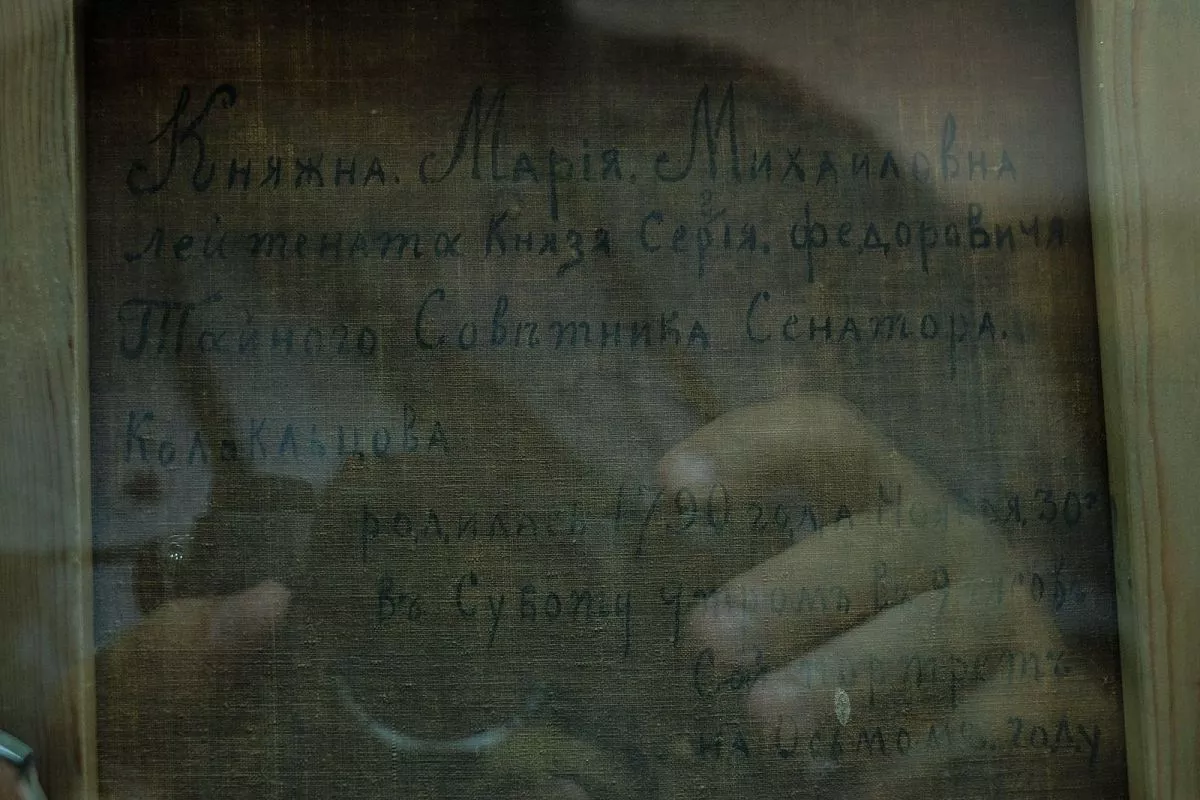 Княжна. Марія. Михаиловна
лейтената Князя Сергія. федоровичя
Тайного Совѣтника Сенатора.
Колокльцова
родилась 1790 года Ноября. 30го
въ Суботу утромъ в 9 часовъ
Сей портретъ
на Осьмомъ. году